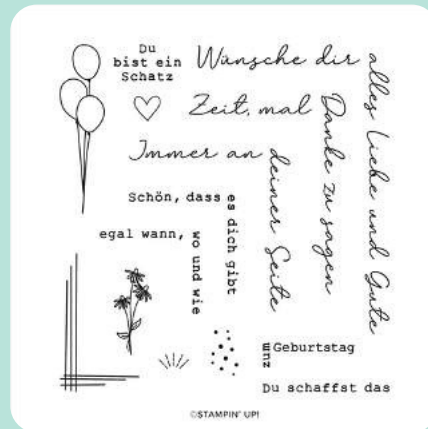 Du
bist ein
Schatz
Wünsche dir
alles Liebe und Gute
Zeit, mal
Danke zu sagen
Immer an
deiner Seite
Schön, dass
es dich gibt
egal wann,
wo und wie
zum
Geburtstag
Du schaffst das
©STAMPIN' UP!